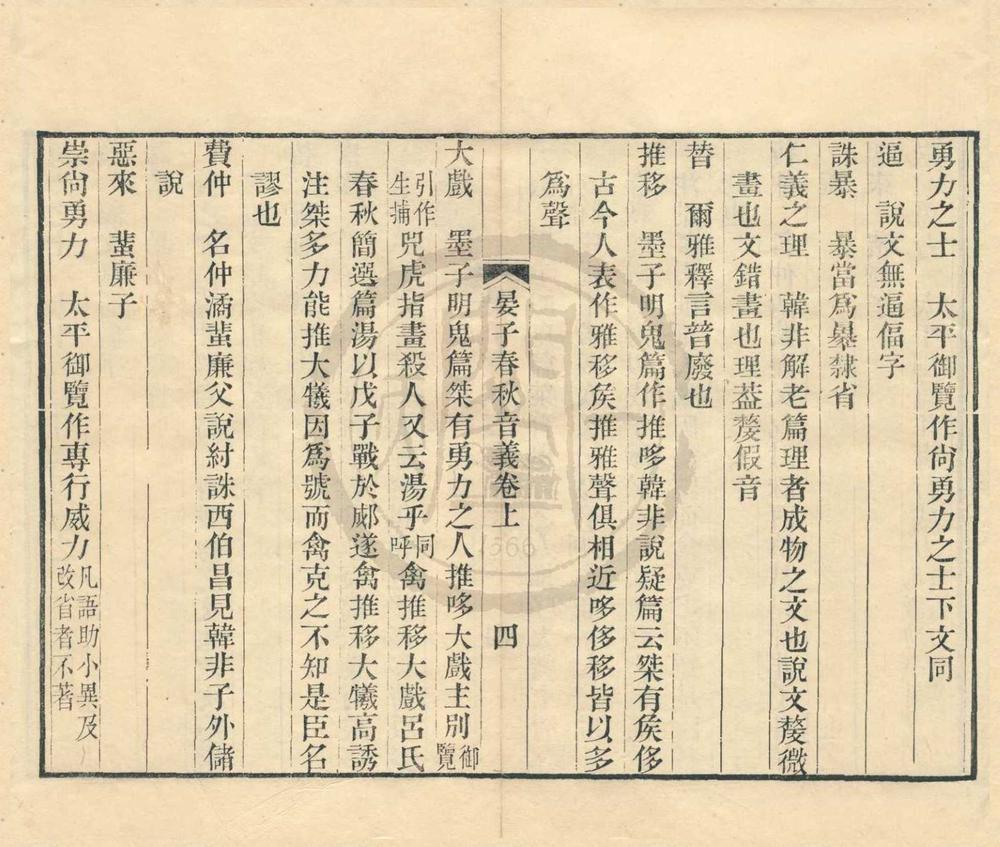 勇力之士　太平御覽作尙勇力之士下文同
逼　說文無逼偪字
誅暴　暴當爲㬥隸省
仁義之理　韓非解老篇理者成物之文也說文嫠微
畫也文錯畫也理葢嫠假音
朁　爾雅釋言朁廢也
推移　墨子明鬼篇作推哆韓非說疑篇云桀有矦侈
古今人表作雅移矦推雅聲俱相近哆侈移皆以多
爲聲
晏子春秋音義卷上　四
大戲　墨子明鬼篇桀有勇力之人推哆大戲主別御覽
引作生捕兕虎指畫殺人又云湯乎同呼禽推移大戲呂氏
春秋簡選篇湯以戊子戰於郕遂禽推移大犧高誘
注桀多力能推大犧因爲號而禽克之不知是臣名
謬也
費仲　名仲潏蜚廉父說紂誅西伯昌見韓非子外儲
說
惡來　蜚廉子
崇尙勇力　太平御覽作專行威力凡語助小異及改省者不著